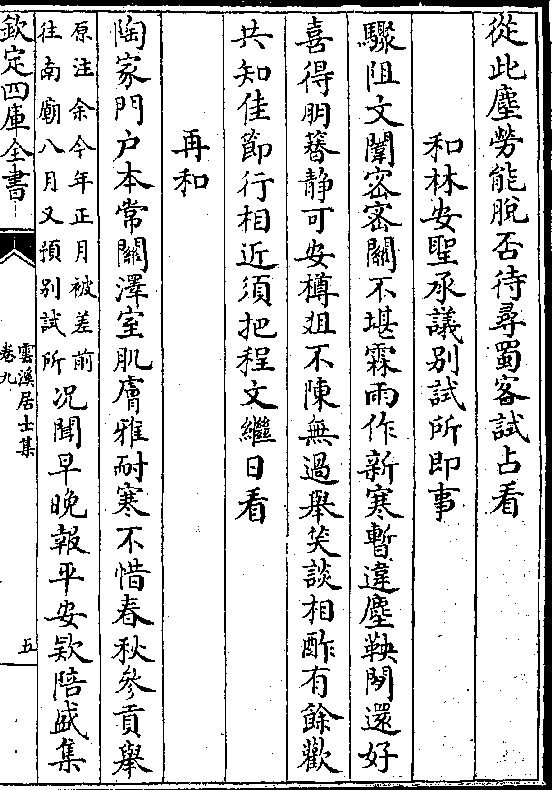 從此塵勞能脫否待尋蜀客試占看
和林安聖承議别試所即事
驟阻文闈密密關不堪霖雨作新寒暫違塵鞅閒還好
喜得朋簪静可安樽俎不陳無過舉笑談相酢有餘歡
共知佳節行相近須把程文繼日看
再和
陶家門户本常關澤室肌膚雅耐寒不惜春秋參貢舉
原注余今年正月被差前
往南廟八月又預别試所
况聞早晚報平安欵陪盛集
欽定四庫全書
雲溪居士集
卷九
五